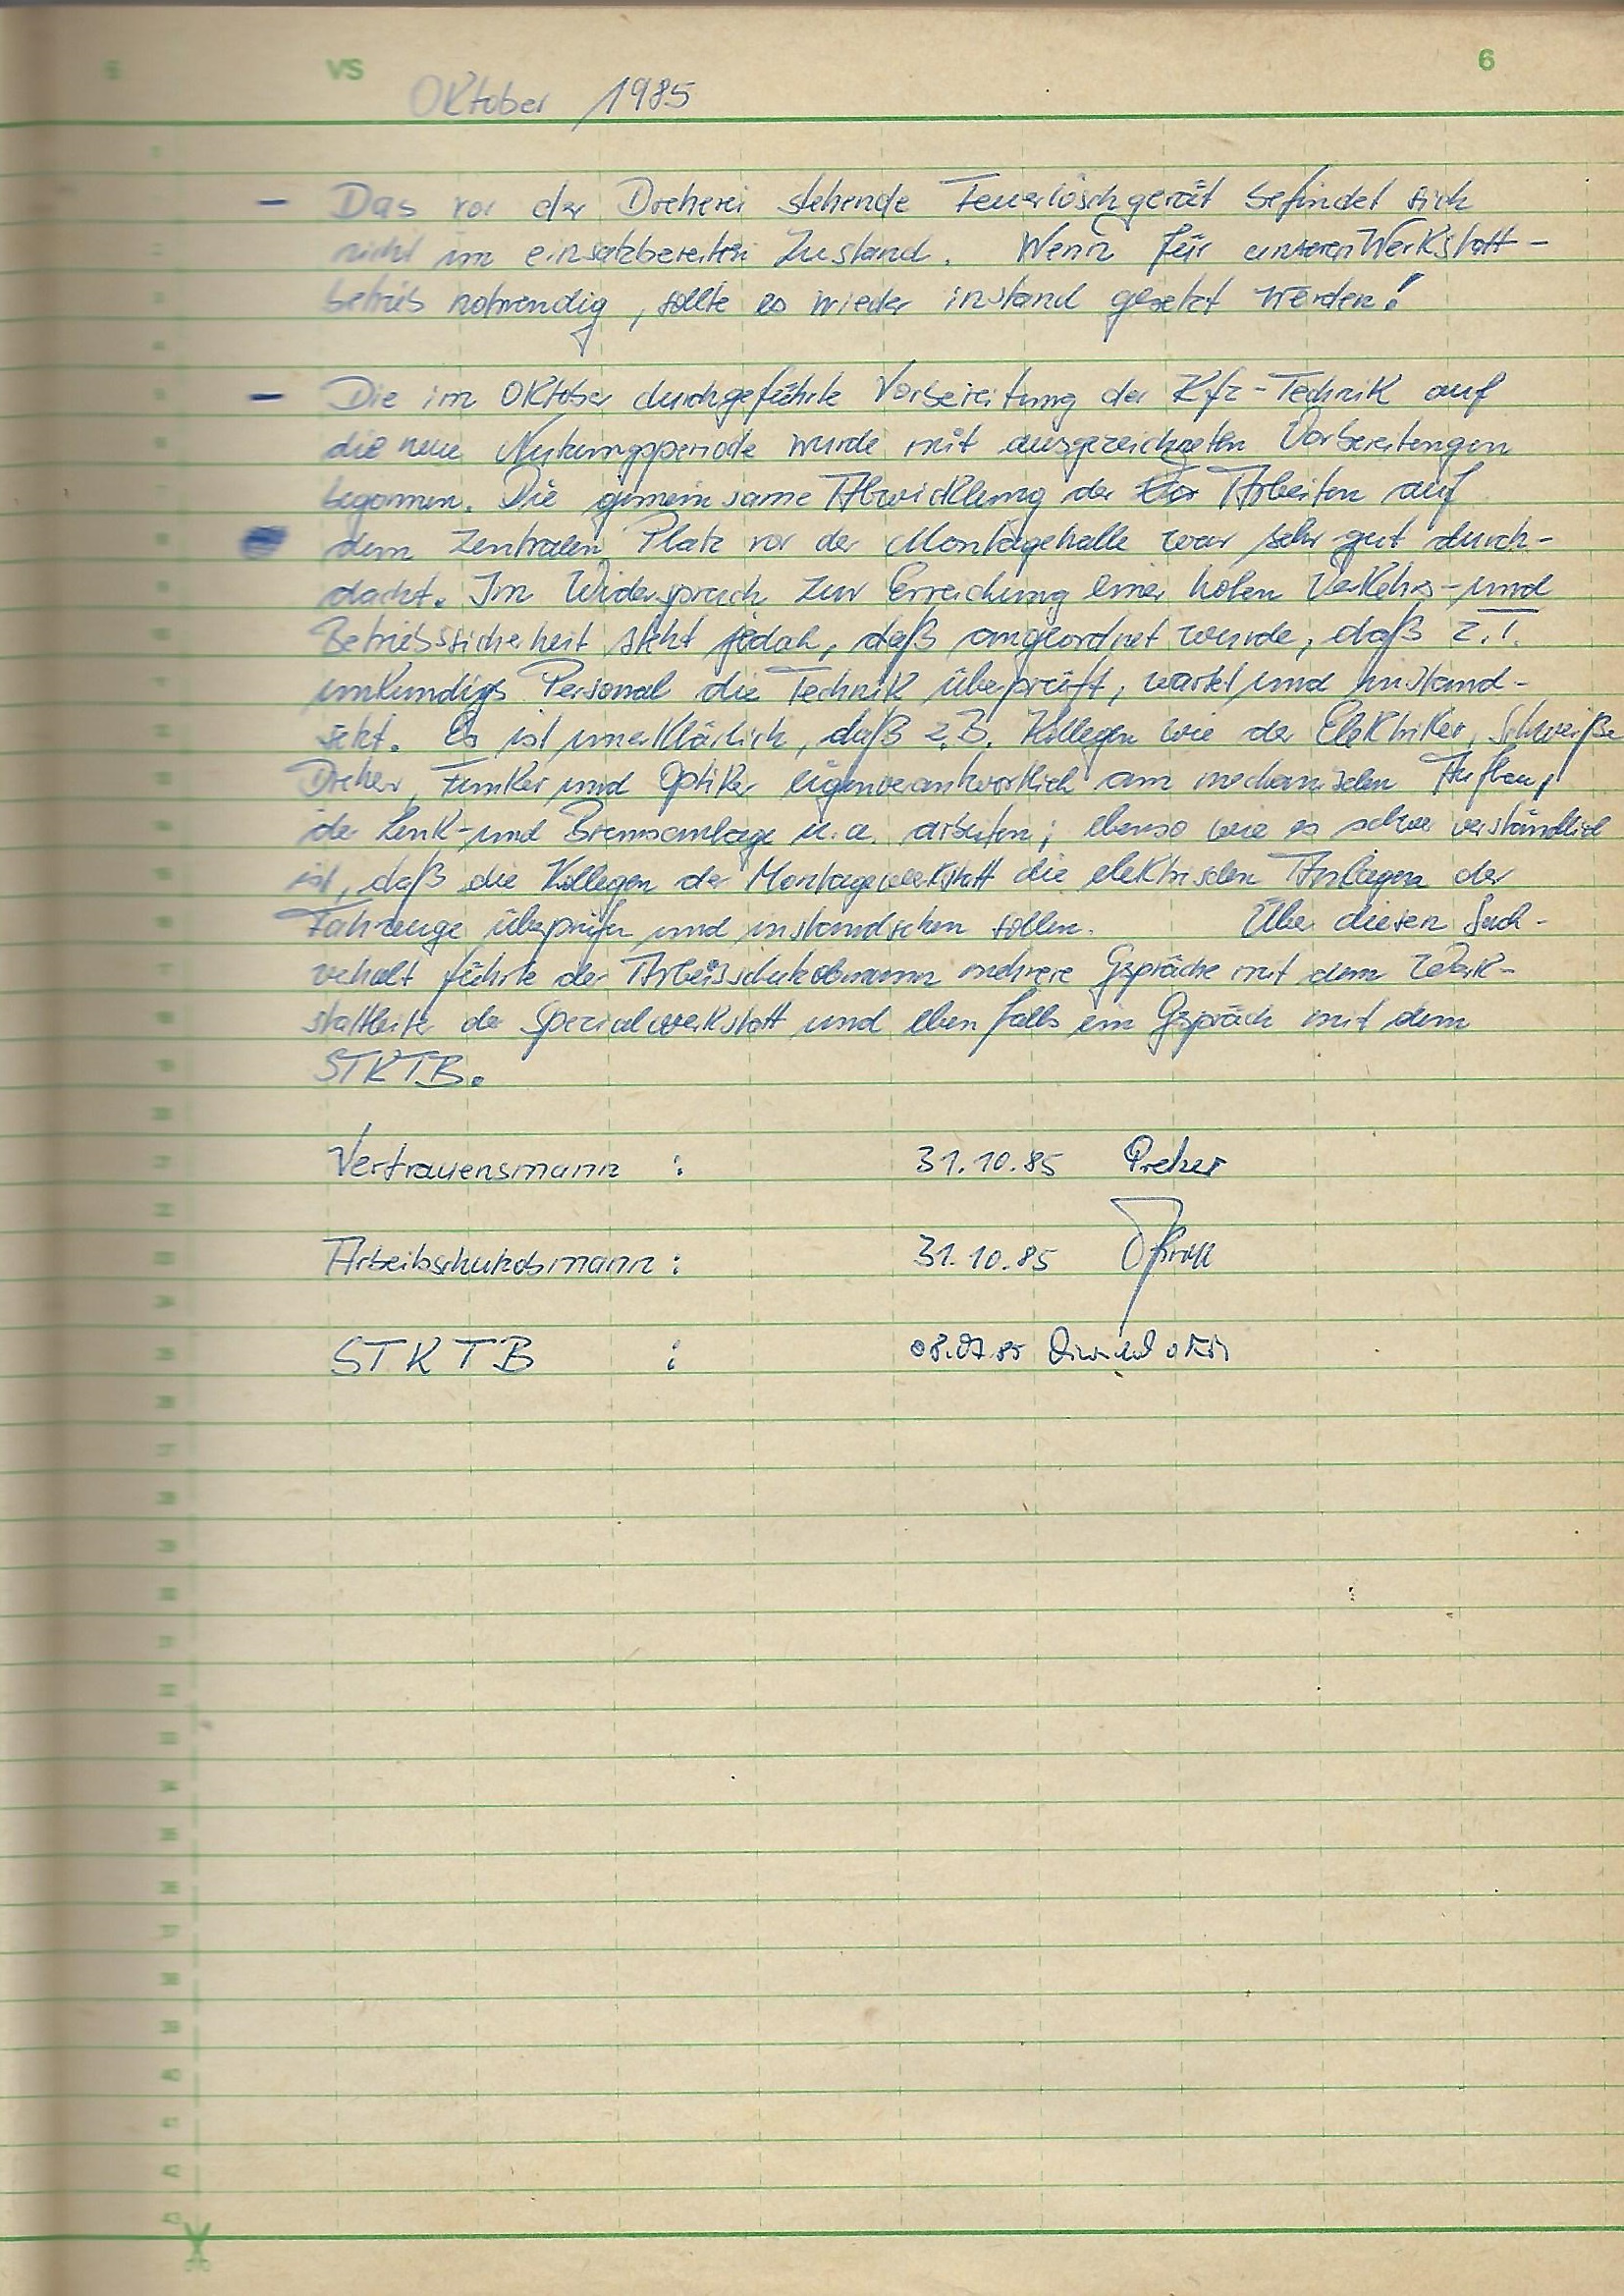 6 VS 6
Oktober 1985
– Das vor der Dreherei stehende Feuerlöschgerät befindet sich
nicht im einsatzbereiten Zustand. Wenn für unseren Werkstatt-
betrieb notwendig, sollte es wieder instand gesetzt werden!
– Die im Oktober durchgeführte Vorbereitung der Kfz-Technik auf
die neue Nutzungsperiode wurde mit ausgezeichneten Vorbereitungen
begonnen. Die gemeinsame Abwicklung der Arbeiten auf
dem zentralen Platz vor der Montagehalle war sehr gut durch-
dacht. Im Widerspruch zur Erreichung einer hohen Verkehrs- und
Betriebssicherheit steht jedoch, daß angeordnet wurde, daß z.T.
unkundiges Personal die Technik überprüft, wartet und instand-
setzt. Es ist unerklärlich, daß z.B. Kollegen wie der Elektriker, Schweißer
Dreher, Funker und Optiker eigenverantwortlich am mechanischen Aufbau,
der Lenk- und Bremsanlage u.a. arbeiten; ebenso wie es schwer verständlich
ist, daß die Kollegen der Montagewerkstatt die elektrischen Anlagen der
Fahrzeuge überprüfen und instandsetzen sollen. Über diesen Sach-
verhalt führte der Arbeitsschutzobmann mehrere Gespräche mit dem Werk-
stattleiter der Spezialwerkstatt und ebenfalls ein Gespräch mit dem
STKTB.
Vertrauensmann : 31.10.85
Arbeitsschutzobmann : 31.10.85
STKTB :